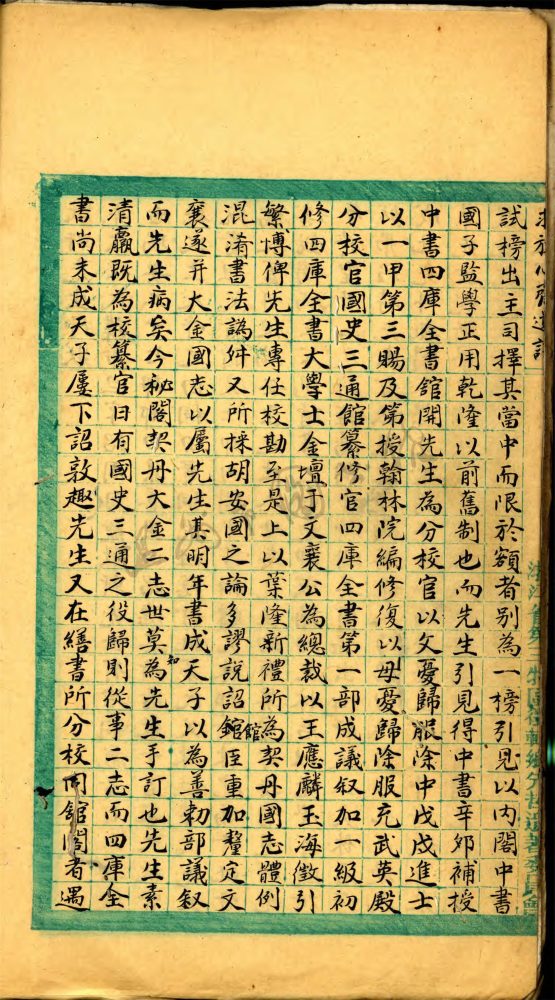 試榜出主司擇其當中而限於額者別為一榜引見以內閣中書
國子監學正用乾隆以前舊制也而先生引見得中書辛卯補授
中書四庫全書館開先生為分校官以父憂歸服除中戊戌進士
以一甲第三賜及第授翰林院編修復以母憂歸除服充武英殿
分校官國史三通館纂修官四庫全書第一部成議叙加一級初
修四庫全書大學士金壇于文襄公為總裁以王應麟玉海徵引
繁博俾先生專任校勘至是上以葉隆新禮所為契丹國志體例
混淆書法譌舛又所採胡安國之論多謬說詔館臣重加釐定文
襄遂并大金國志以屬先生其明年書成天子以為善勅部議叙
而先生病矣今秘閣契丹大金二志世莫知為先生手訂也先生素
清羸既為校纂官日有國史三通之役歸則從事二志而四庫全
書尚未成天子屢下詔敦趣先生又在繕書所分校同館閣者遇